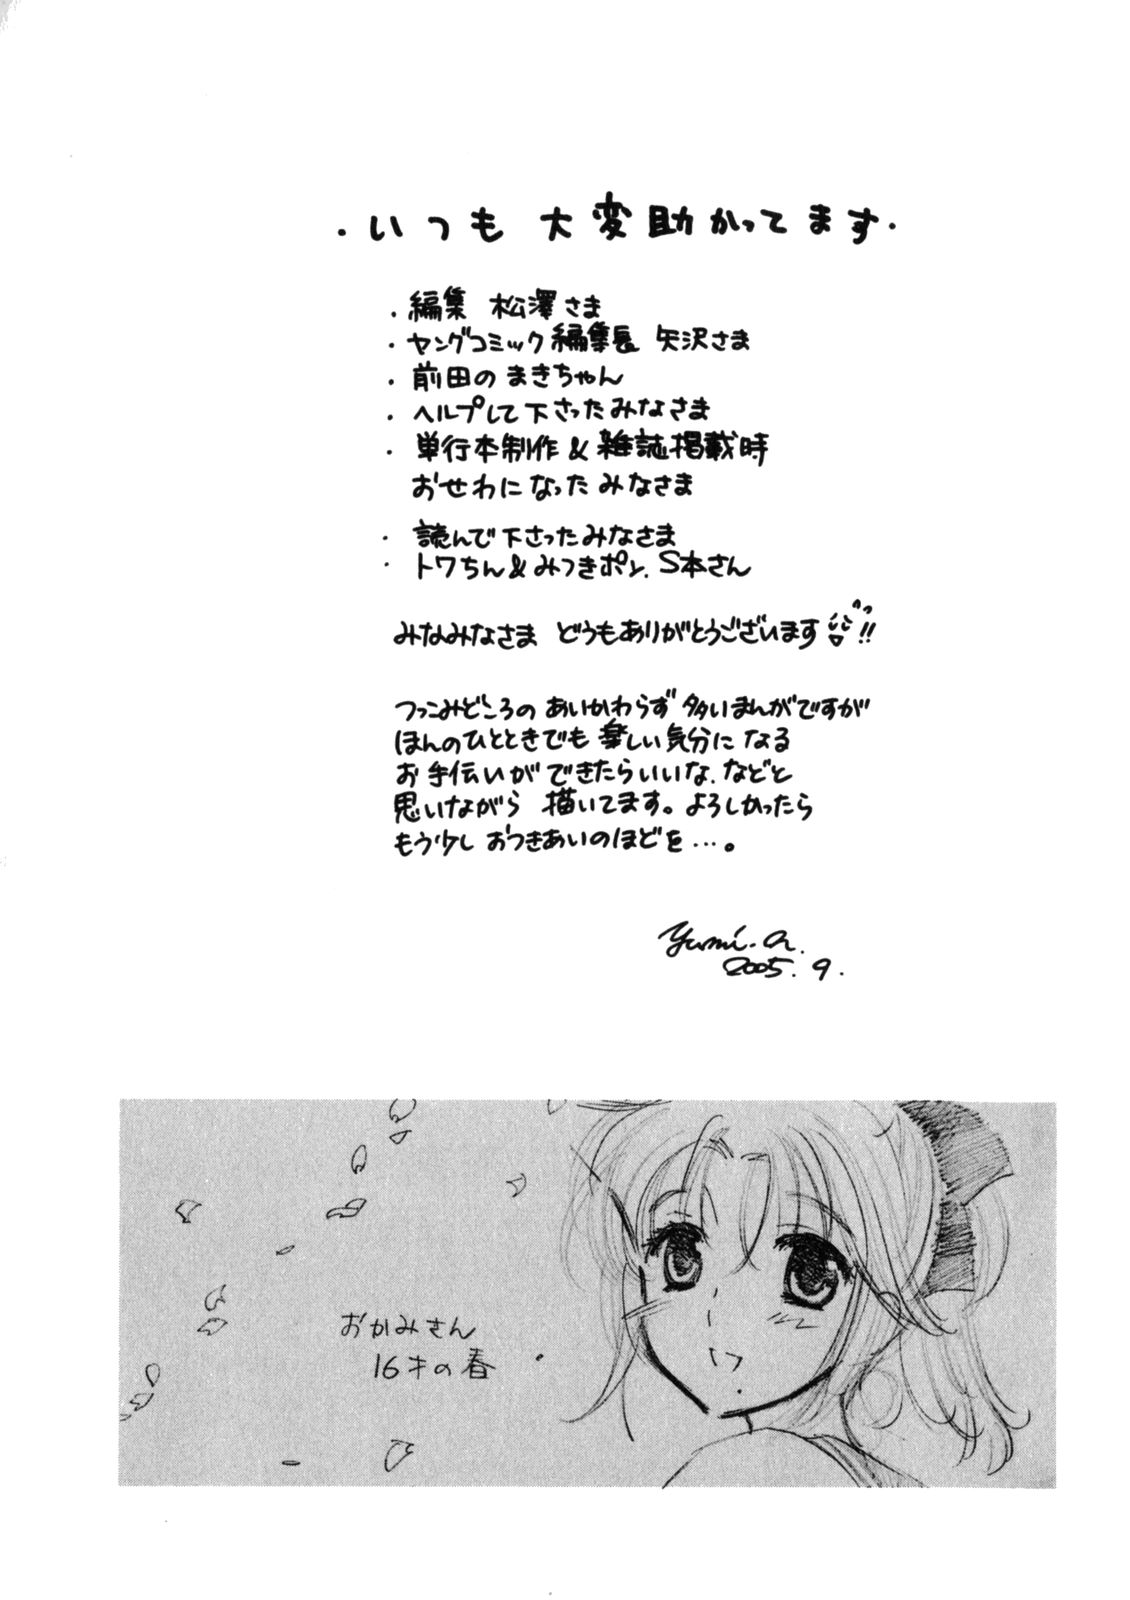 ・いつも 大変助かってます・
・編集 松澤さま
・ヤングコミック編集長 矢沢さま
・前田の まきちゃん
・ヘルプして下さったみなさま
・単行本制作&雑誌掲載時
おせわになった みなさま
・読んで下さったみなさま
・トワちん&みつきポン、S本さん
みなみなさま どうもありがとうございます!!
つっこみどころの あいかわらず 多いまんがですが
ほんのひとときでも 楽しい気分になる
お手伝いができたらいいな、などと
思いながら 描いてます。よろしかったら
もう少し おつきあいのほどを…。
yumi.a.
2005.9.
おかみさん
16才の春